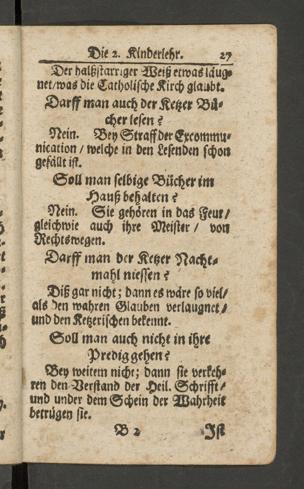 Die 2. Kinderlehr. 27
Der halßstarriger Weiß etwas läug-
net/ was die Catholische Kirch glaubt.
Darff man auch der Ketzer Bü-
cher lesen?
Nein. Bey Straff der Excommu-
nication / welche in den Lesenden schon
gefällt ist.
Soll man selbige Bücher im
Hauß behalten?
Nein. Sie gehören in das Feur/
gleichwie auch ihre Meister / von
Rechtswegen.
Darff man der Ketzer Nacht-
mahl niessen?
Diß gar nicht; dann es wäre so viel/
als den wahren Glauben verlaugnet/
und den Ketzerischen bekenne.
Soll man auch nicht in ihre
Predig gehen?
Bey weitem nicht; dann sie verkeh-
ren den Verstand der Heil. Schrifft/
und under dem Schein der Wahrheit
betrügen sie.
B 2 Ist